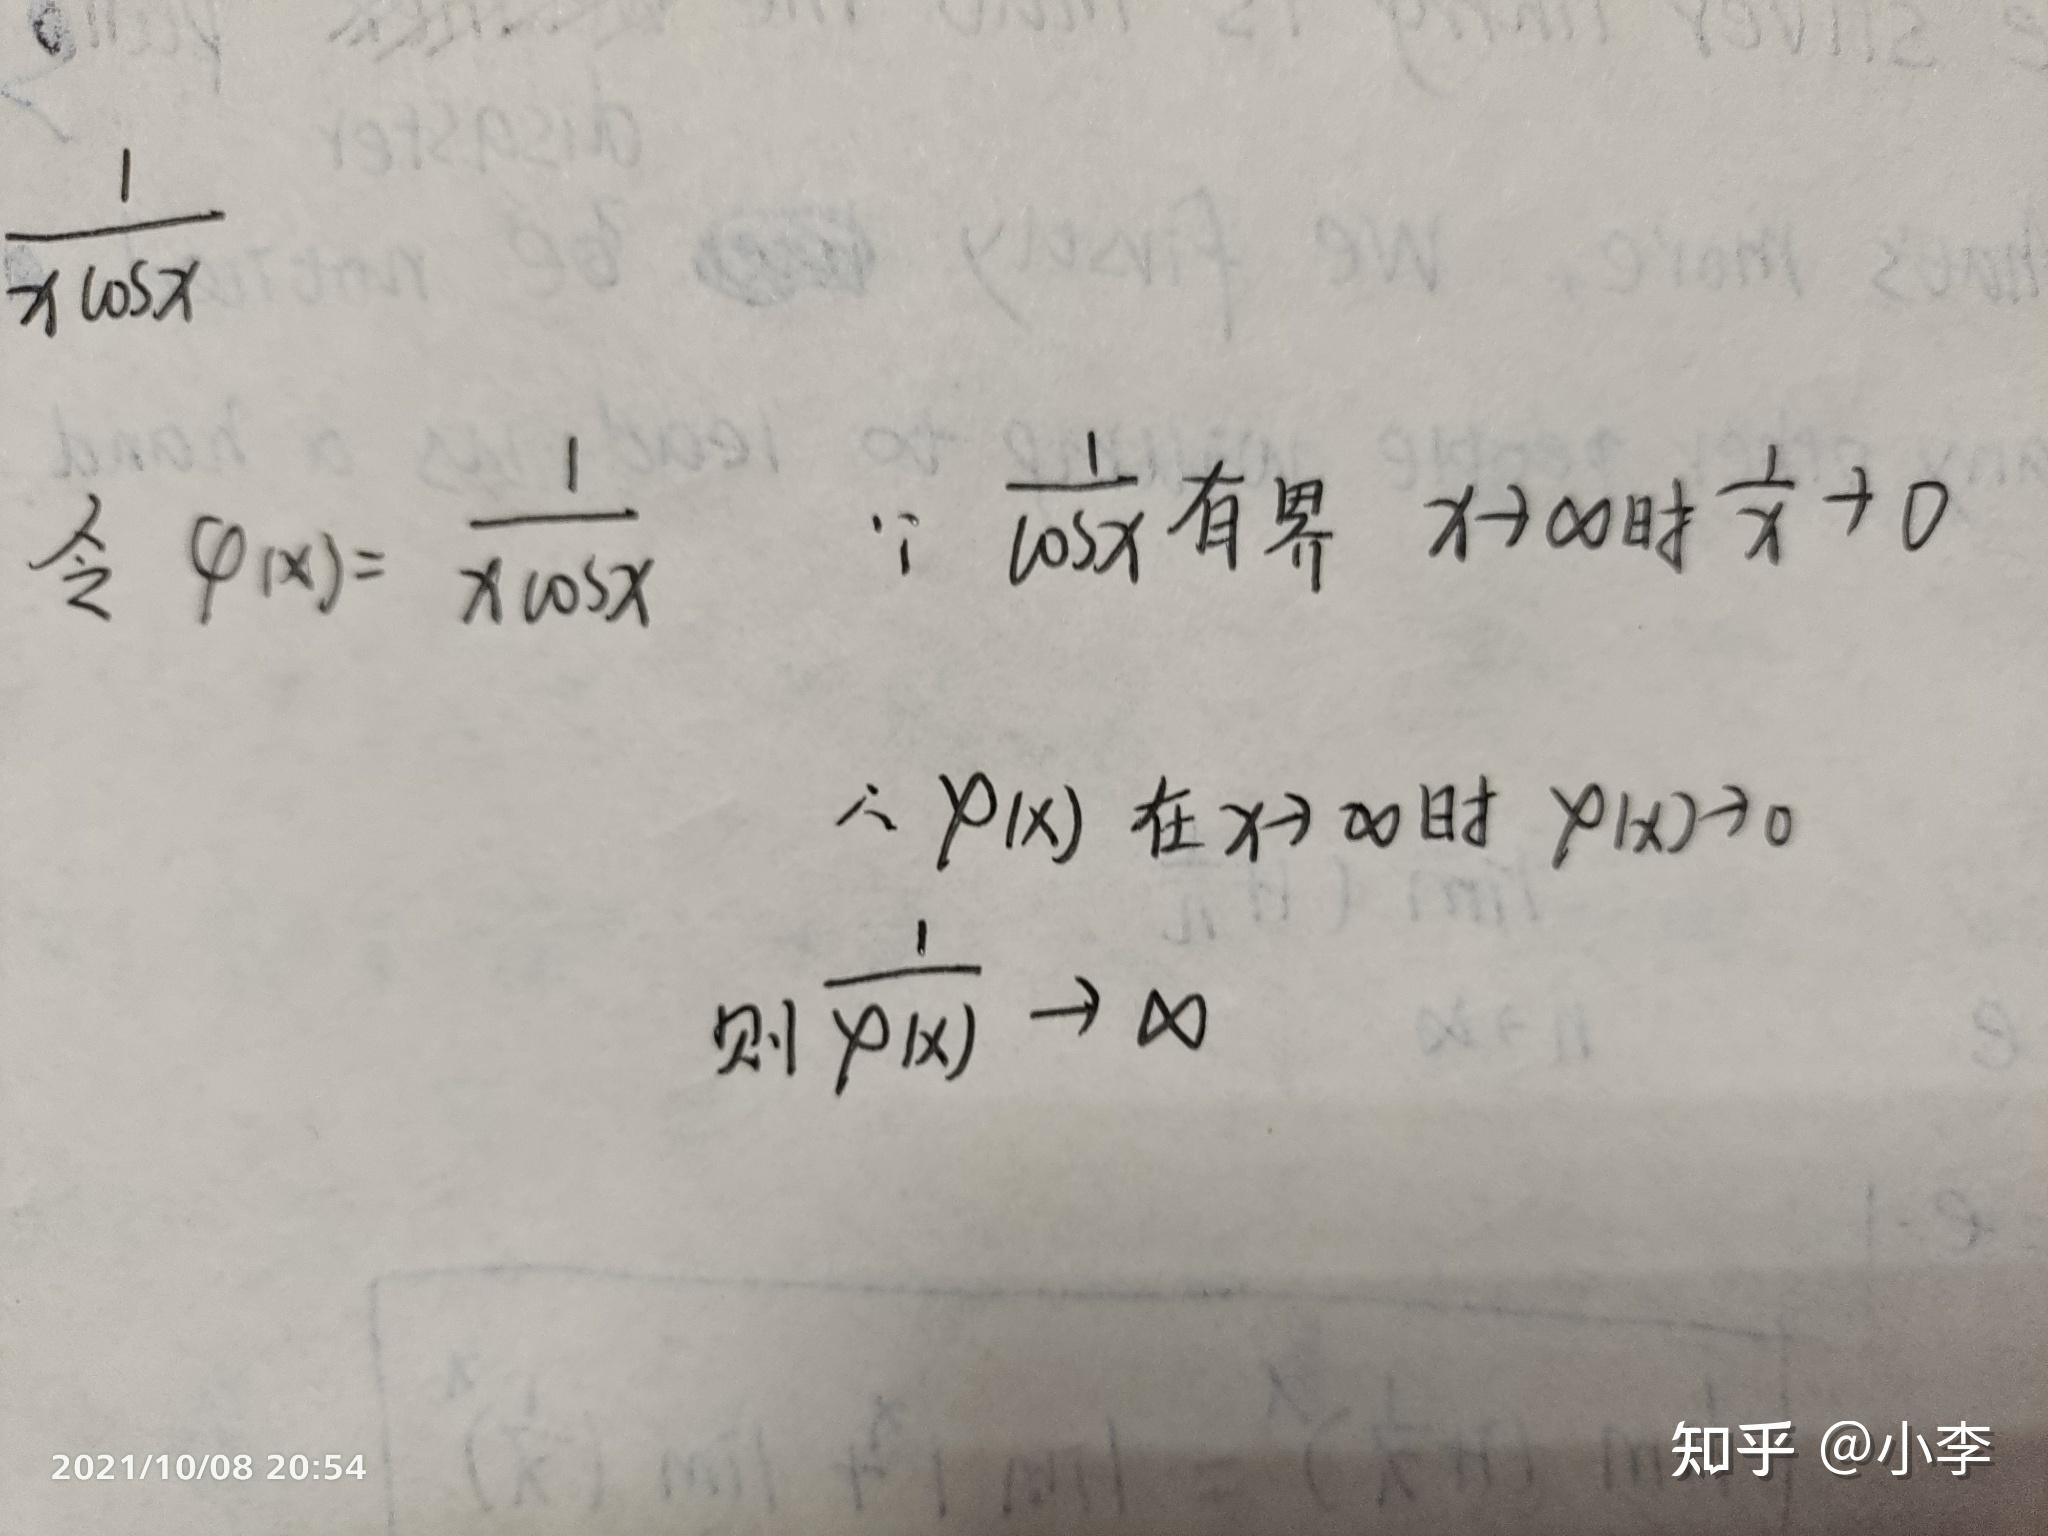 1
x cosx
令 φ(x) = 1/(x cosx) ∵ 1/cosx 有界 x→∞时 1/x → 0
∴ φ(x) 在 x→∞时 φ(x)→0
则 1/φ(x) → ∞
2021/10/08 20:54
知乎 @小李